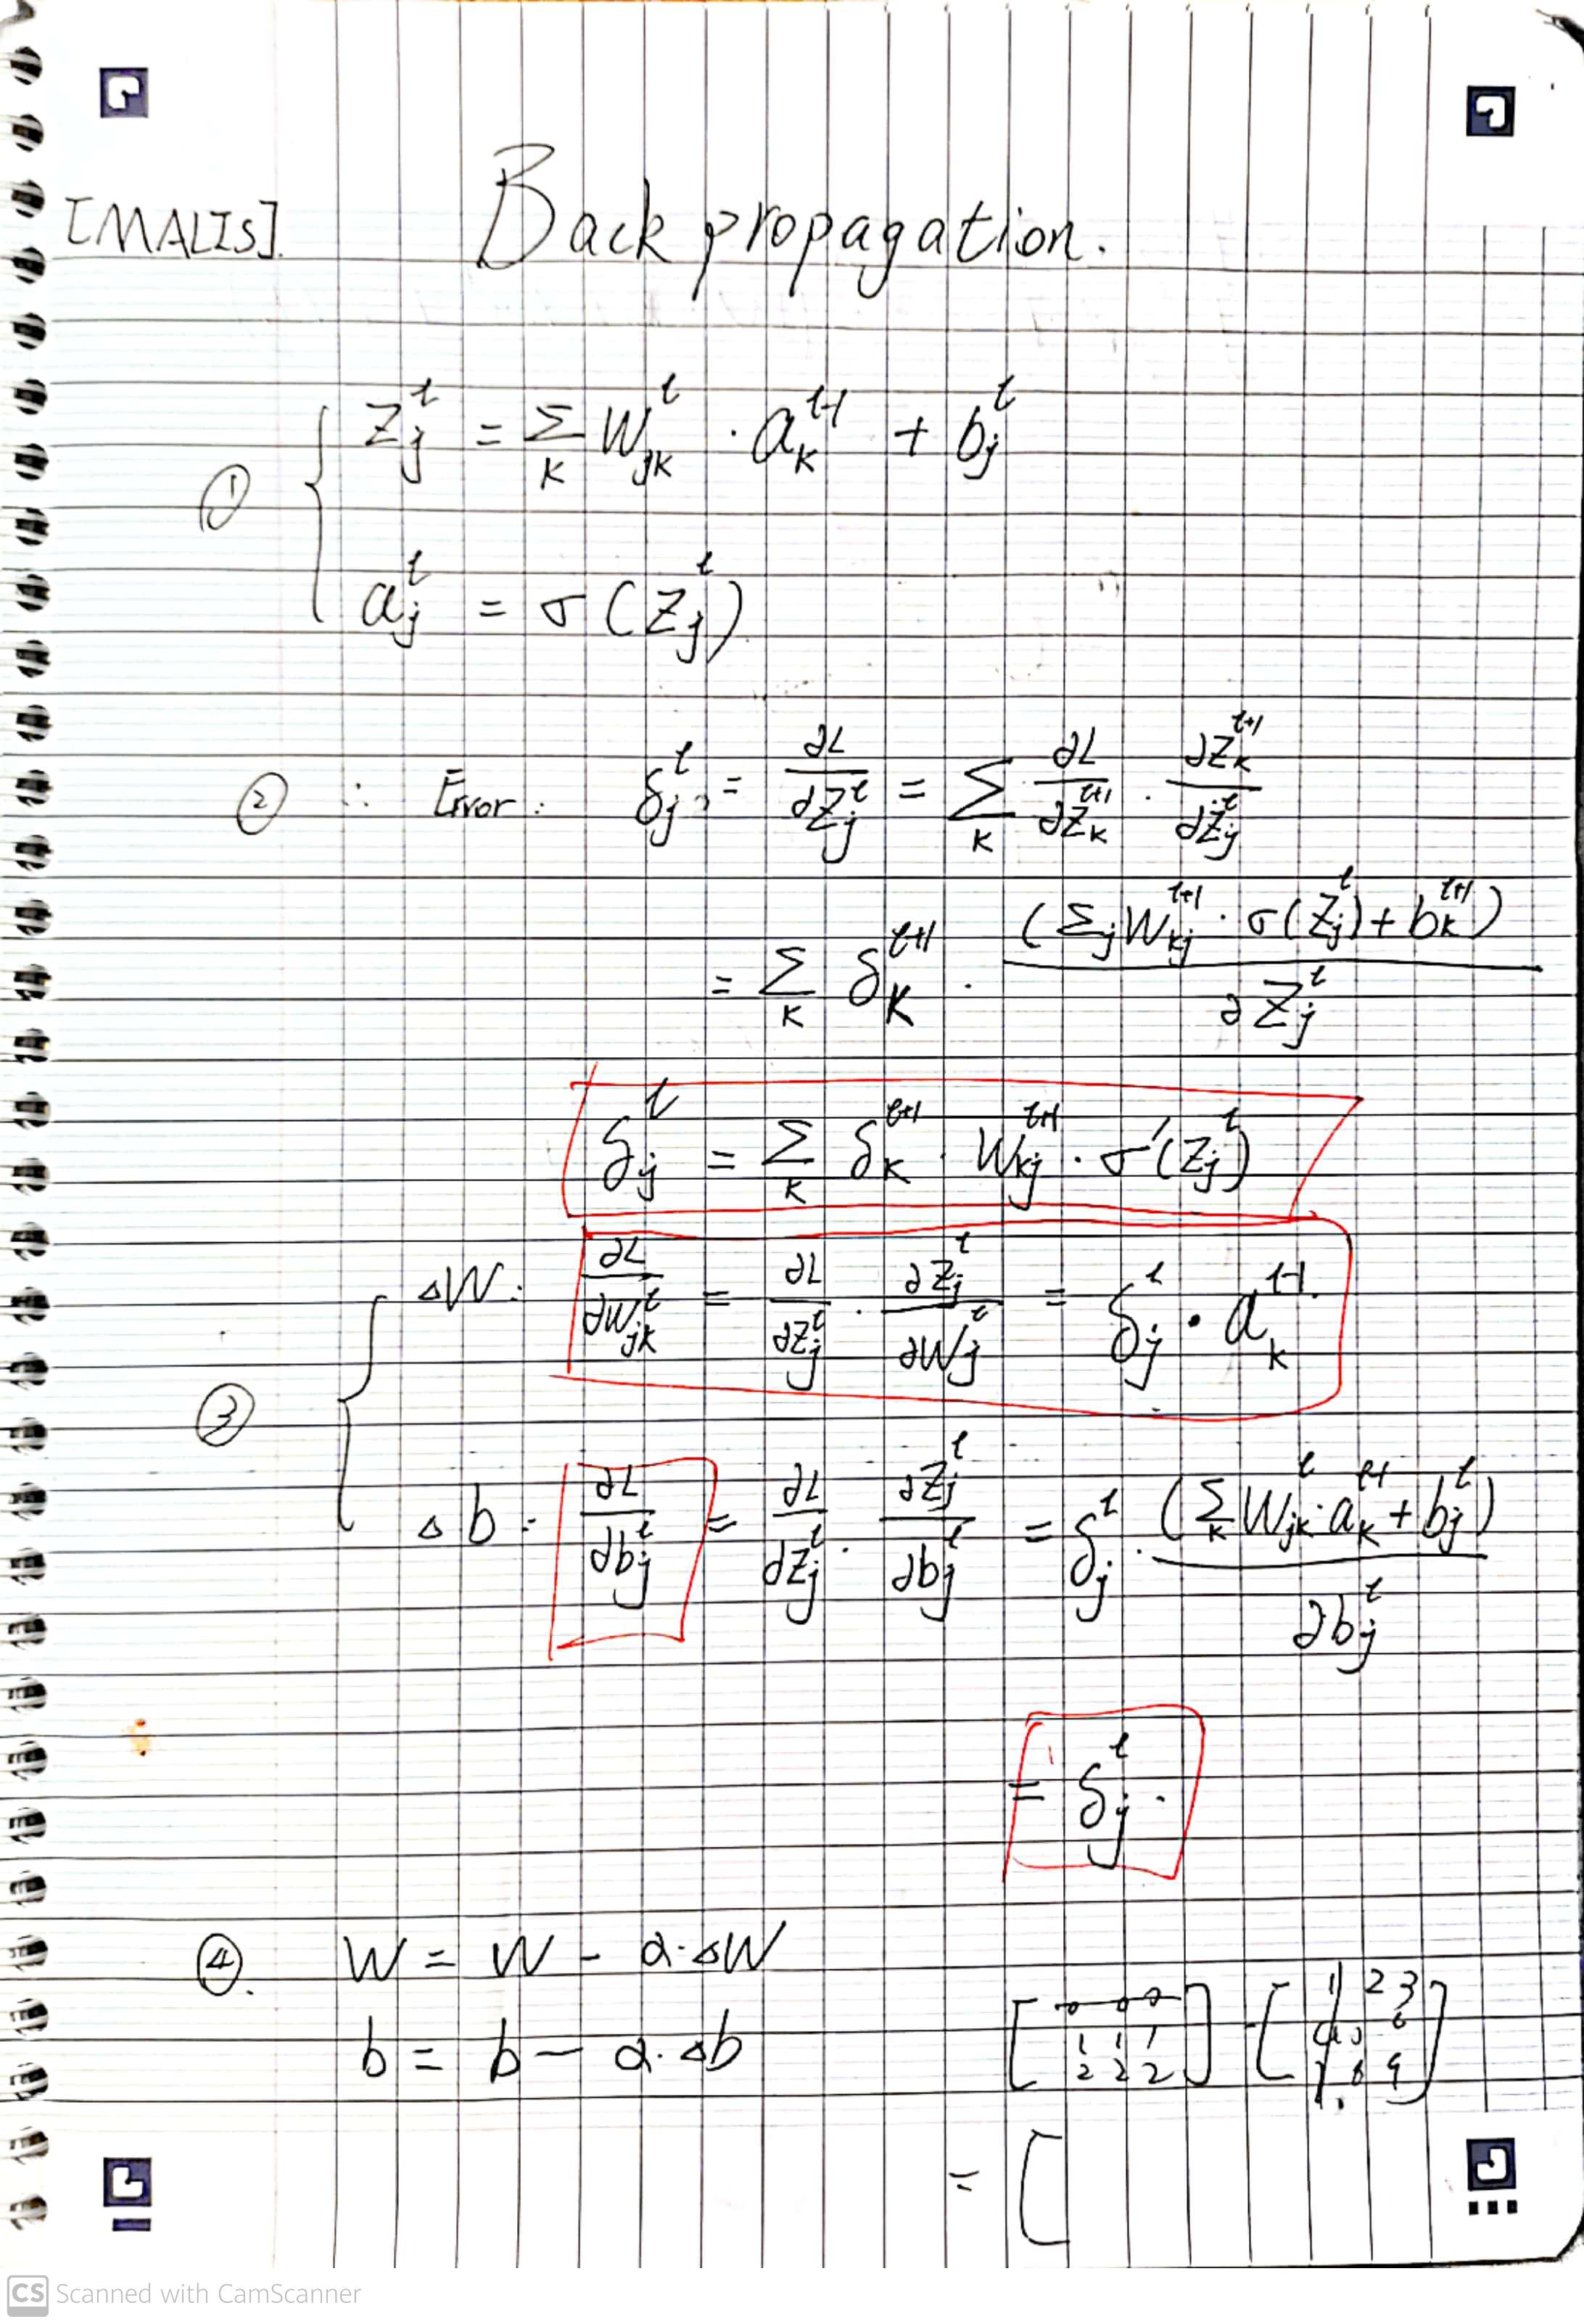 [MALIS].
Back propagation.
① { z_j^l = Σ_k W_jk^l · a_k^{l-1} + b_j^l
a_j^l = σ(z_j^l)
② ∴ Error: δ_j^l = ∂L/∂z_j^l = Σ_k ∂L/∂z_k^{l+1} · ∂z_k^{l+1}/∂z_j^l
= Σ_k δ_k^{l+1} · (Σ_j W_kj^{l+1} · σ(z_j^l) + b_k^{l+1}) / ∂z_j^l
δ_j^l = Σ_k δ_k^{l+1} · W_kj^{l+1} · σ'(z_j^l)
③ { ΔW: ∂L/∂W_jk^l = ∂L/∂z_j^l · ∂z_j^l/∂W_j^l = δ_j^l · a_k^{l-1}
Δb: ∂L/∂b_j^l = ∂L/∂z_j^l · ∂z_j^l/∂b_j^l = δ_j^l · (Σ_k W_jk^l · a_k^{l-1} + b_j^l) / ∂b_j^l
= δ_j^l .
④. W = W - α·ΔW
b = b - α·Δb
[0 0 0
1 1 1
2 2 2]
[1 2 3
6
8 9]
= [
CS Scanned with CamScanner